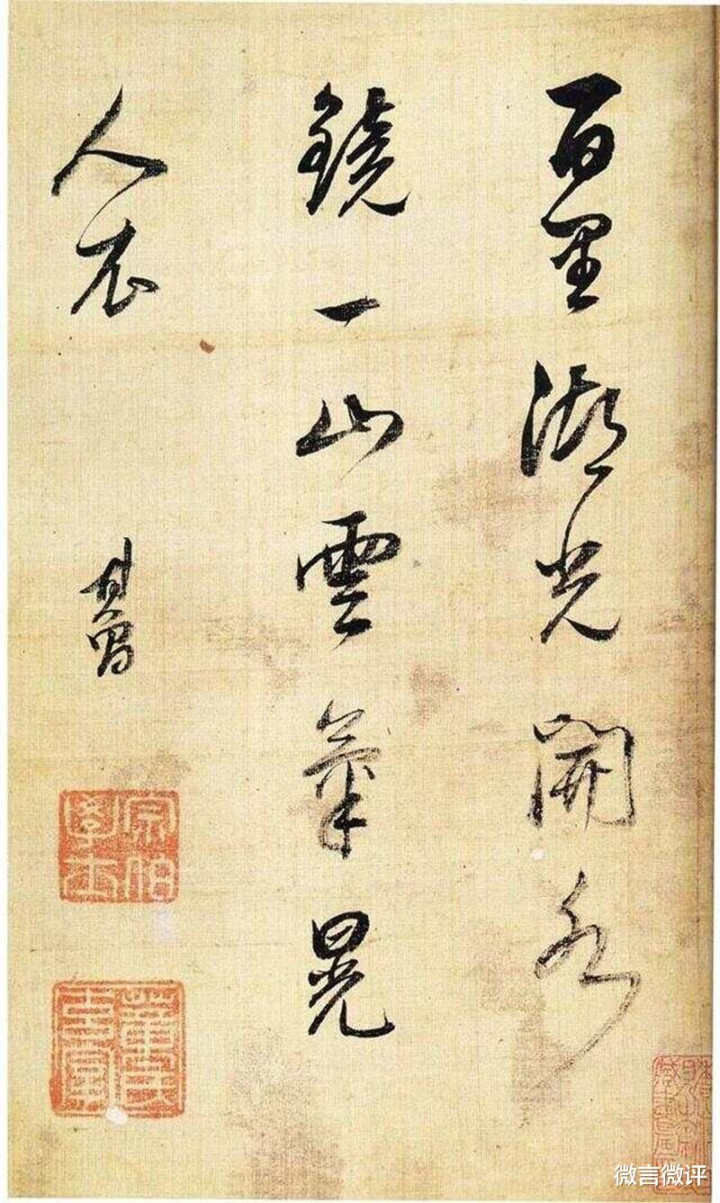 百里湖光開水
鏡一山雲氣晃
人衣
其昌
宗伯學士
董氏玄宰
微言微评